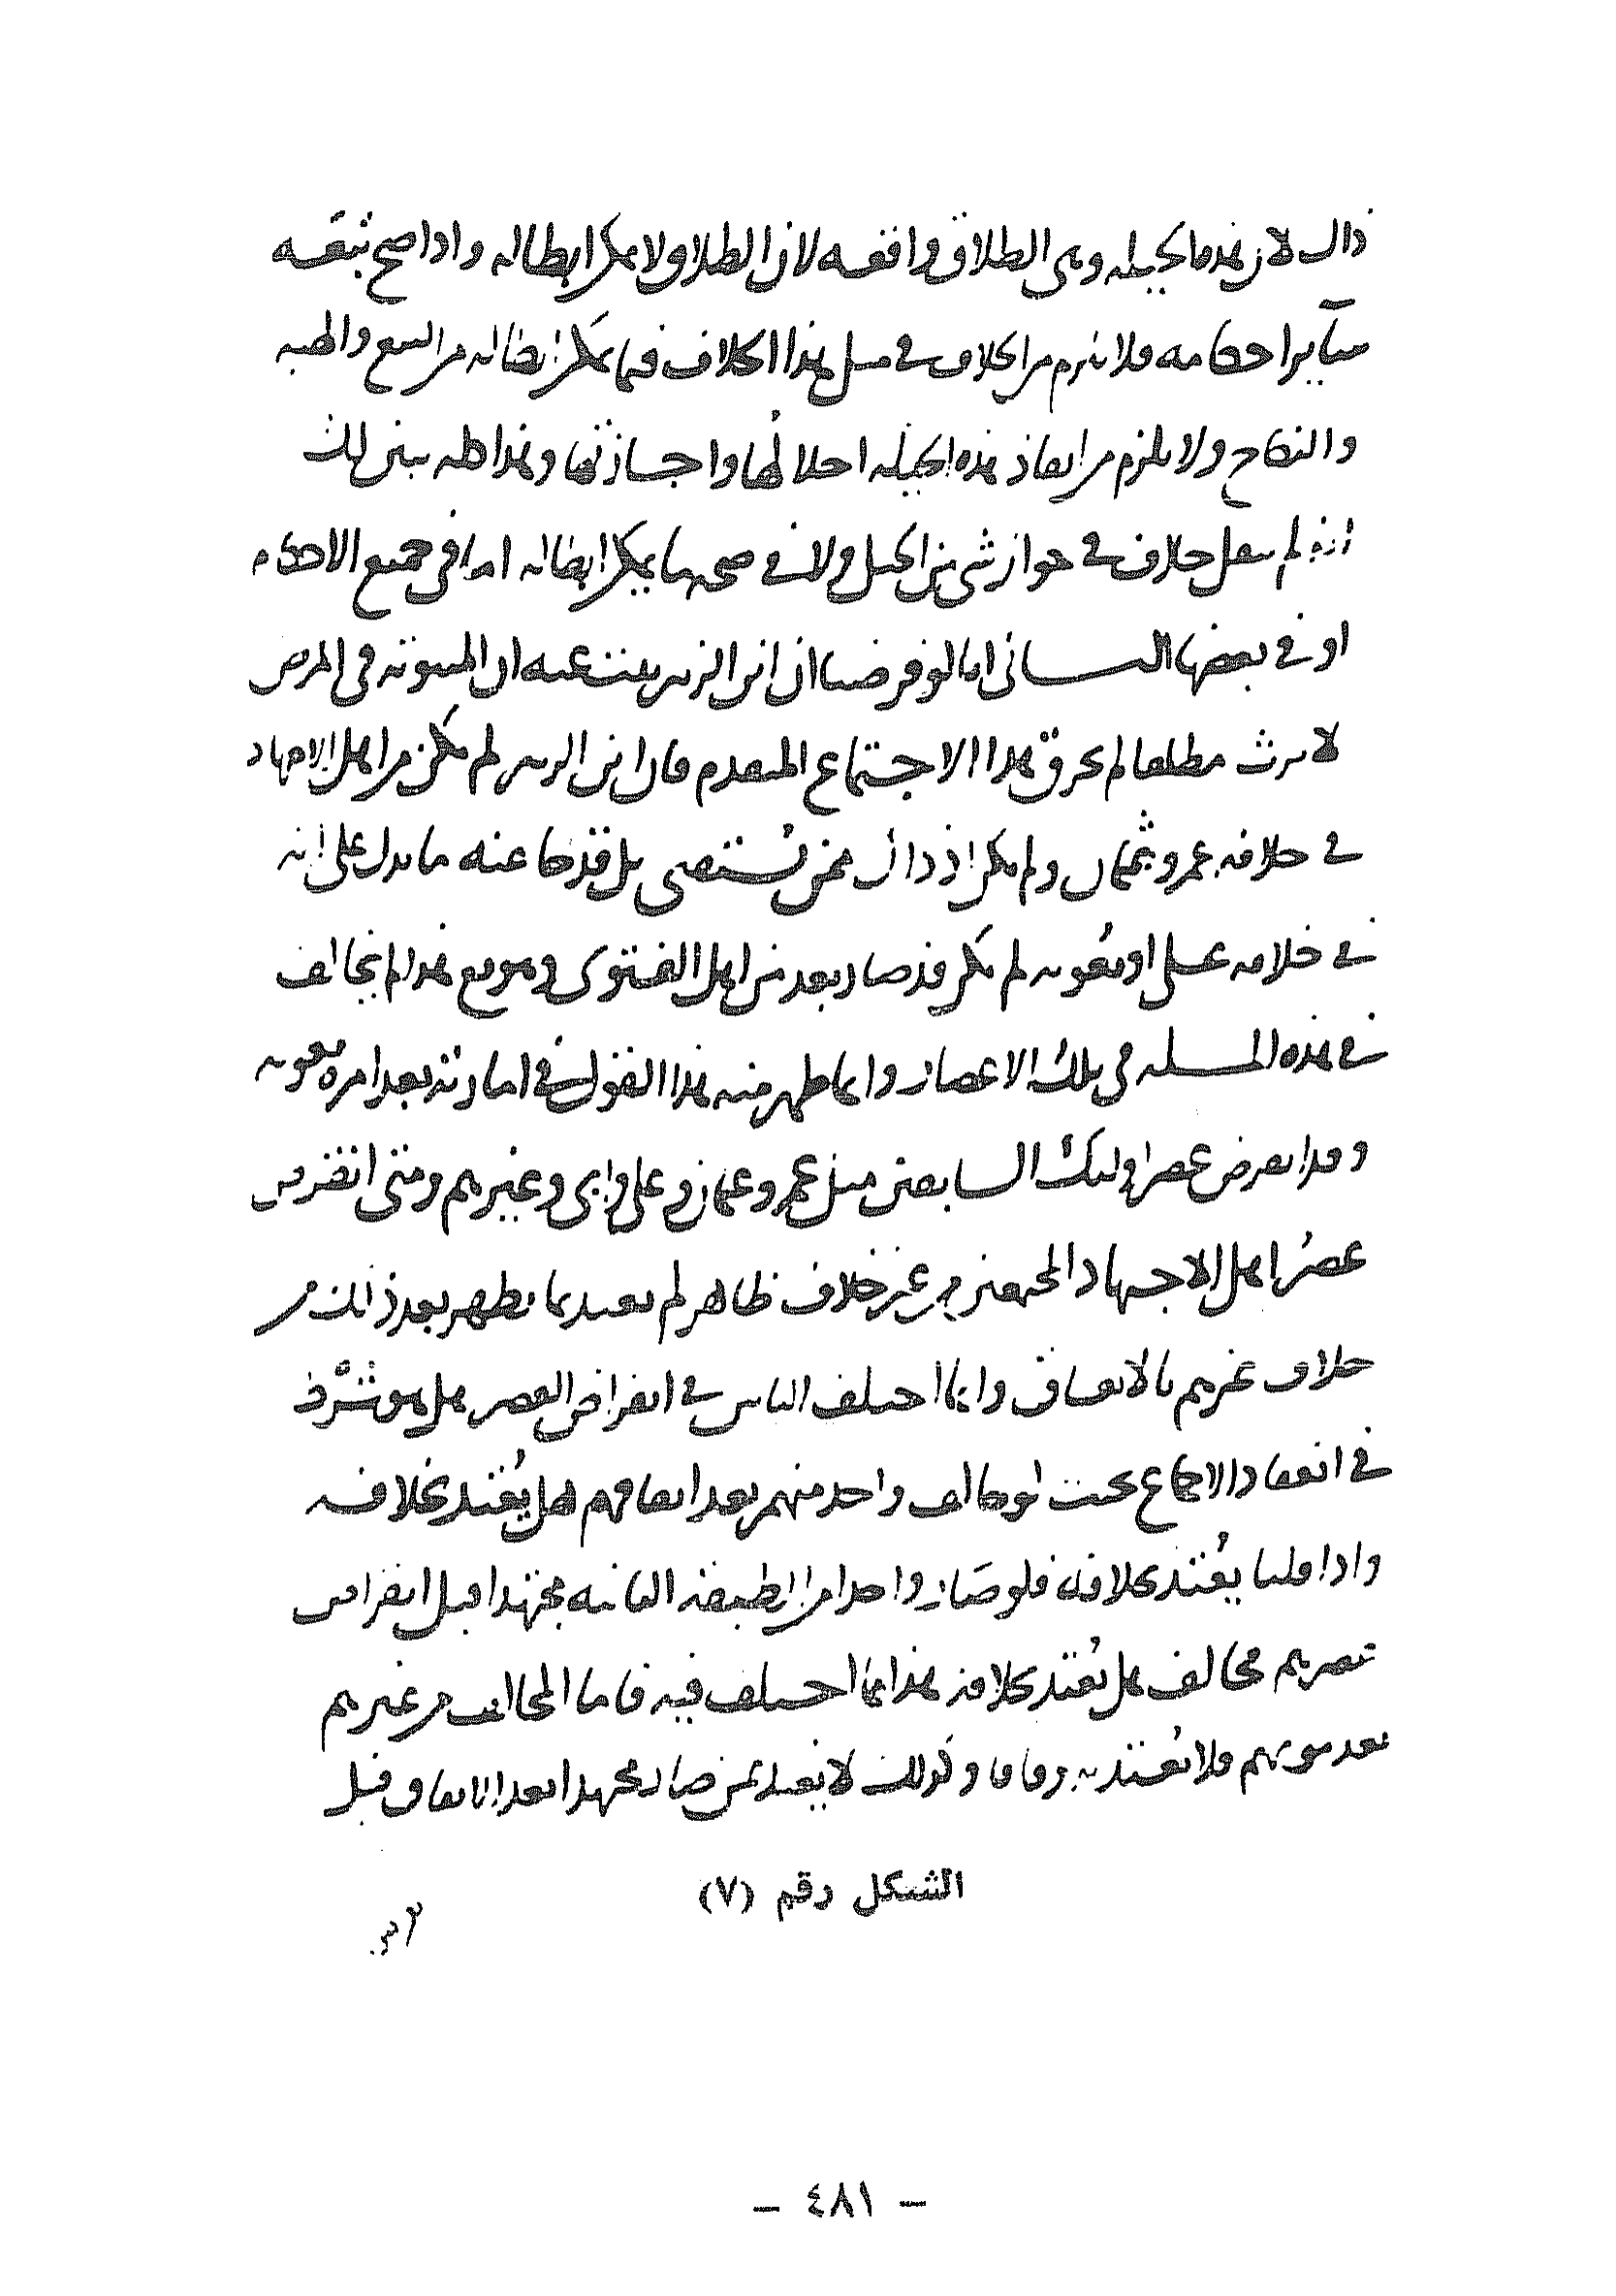 ذاك لان هذه الحيلة وهي الطلاق واقعه لان الطلاق لا يمكن ابطاله واذا صح تبعه
سآير احكامه فلا يلزم من الخلاف في مثل هذا الخلاف فيما يمكن ابطاله من البيع والهبه
والنكاح ولا يلزم من انفاذ هذه الحيله احلالها واجازتها وهذا كله يبين لك
انه لم ينقل خلاف في جواز شي من الحيل ولا في صحه ما يمكن ابطاله اما في جميع الاحكام
او في بعضها الثاني انا لو فرضنا ان ابن الزبير ثبت عنه ان المبتوته في المرض
لا ترث مطلقا لم يخرق هذا الاجتماع المتقدم فان ابن الزبير لم يكن من اهل الاجتهاد
في خلافه عمر وعثمان ولم يكن اذ ذاك ممن يستفتى بل قد جا عنه ما يدل على انه
في خلافه علي او معويه لم يكن قد صار بعد من اهل الفتوى وهو مع هذا لم يخالف
في هذه المسله في تلك الاعصار وانما ظهر منه هذا القول في امارته بعد امره معويه
وقد انقرض عصر اوليك السابقين مثل عمر وعثمان وعلي وابي وغيرهم ومتى انقرض
عصر اهل الاجتهاد المجمعين من غير خلاف ظاهر لم يعتد بما يظهر بعد ذلك من
خلاف غيرهم بالاتفاق وانما اختلف الناس في انقراض العصر هل هو شرط
في انعقاد الاجماع بحيث لو خالف واحد منهم بعد اتفاقهم هل يعتد بخلافه
واذا قلنا يعتد بخلافه فلو صار واحد من الطبقه الثانيه مجتهدا قبل انقراض
عصرهم مخالف هل يعتد بخلافه هذا مما اختلف فيه فاما المخالف من غيرهم
بعد موتهم فلا يعتد به وفاقا وكذلك لا يعتد بمن صار مجتهدا بعد الاتفاق قبل
الشكل رقم (٧)
- ٤٨١ -